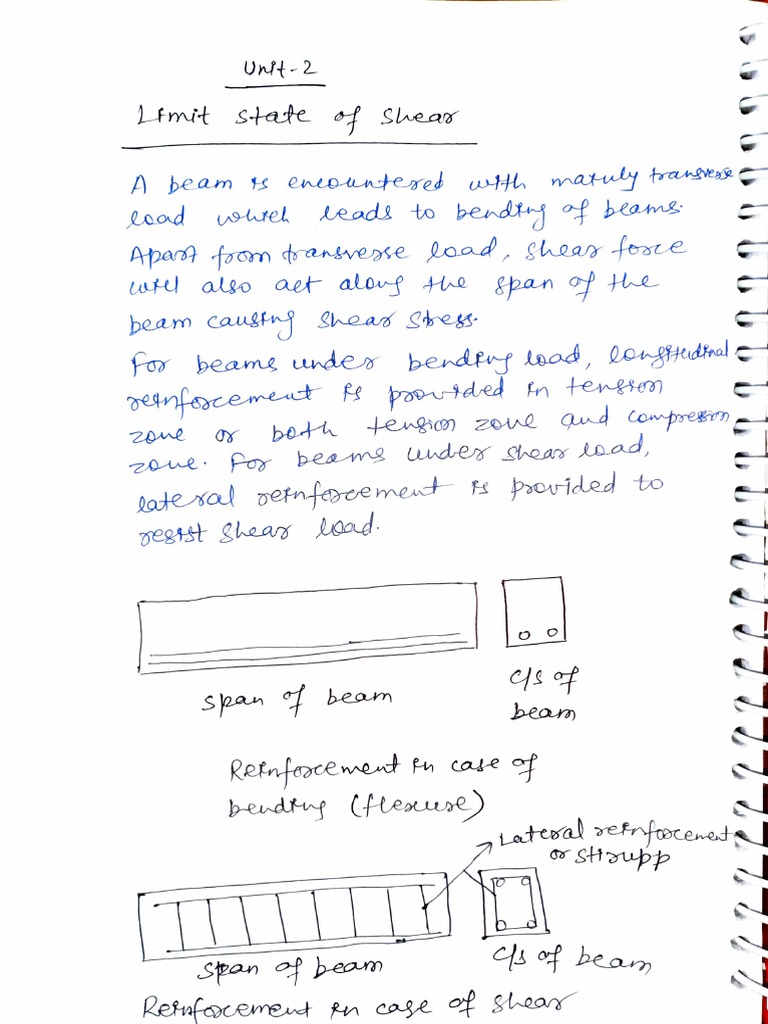 Unit-2
Limit state of shear
A beam is encountered with transverse
load which leads to bending of beams.
Apart from transverse load, shear force
will also act along the span of the
beam causing shear stress.
For beams under bending load, longitudinal
reinforcement is provided in tension
zone or both tension zone and compression
zone. For beams under shear load,
lateral reinforcement is provided to
resist shear load.
span of beam
c/s of
beam
Reinforcement in case of
bending (flexure)
Lateral reinforcement
or stirupp
span of beam
c/s of beam
Reinforcement in case of shear